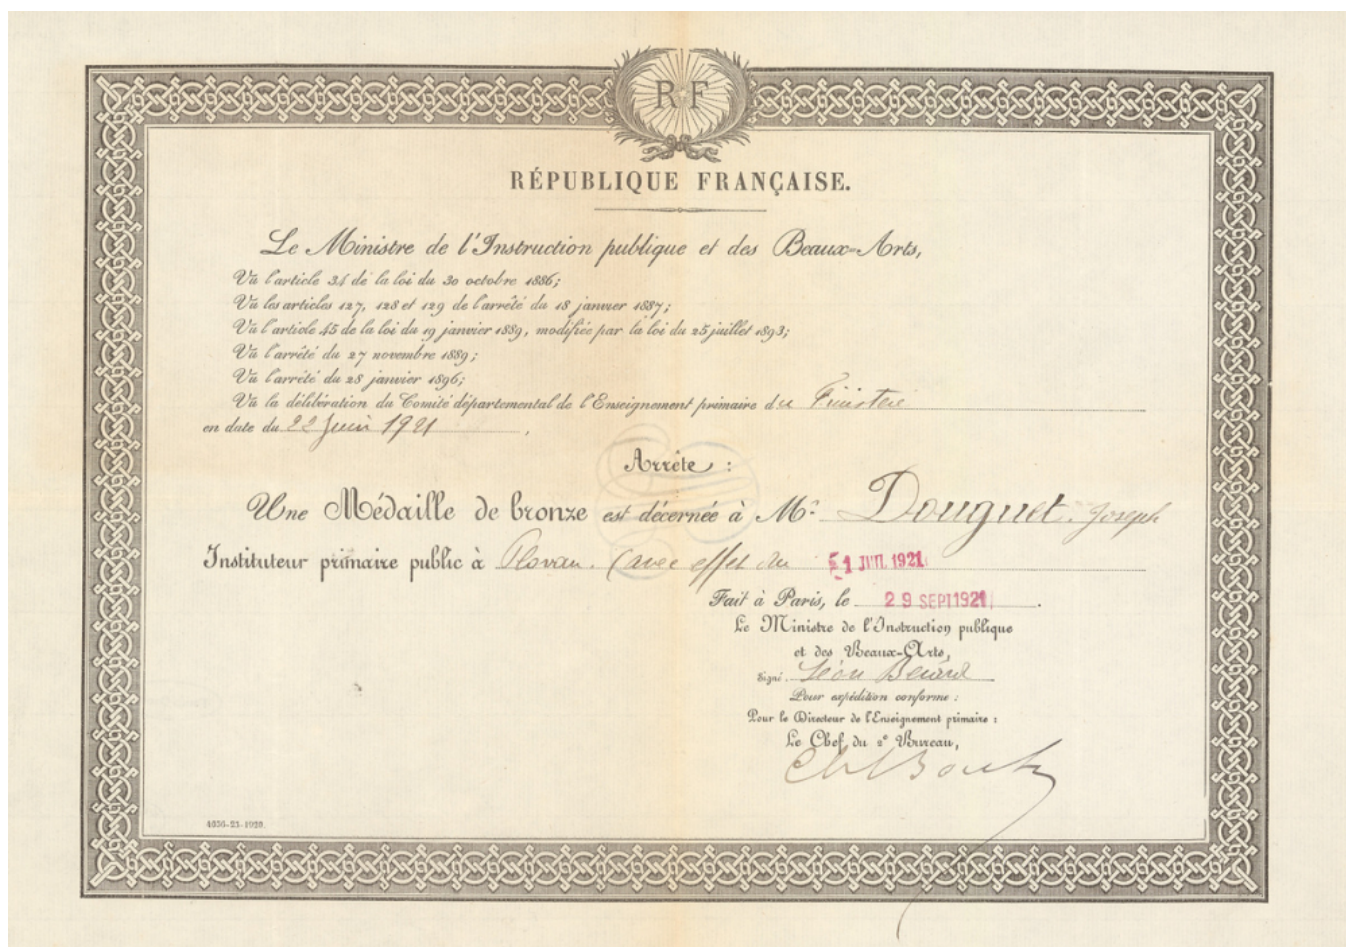 RF
RÉPUBLIQUE FRANÇAISE.
Le Ministre de l'Instruction publique et des Beaux-Arts,
Vu l'article 34 de la loi du 30 octobre 1886;
Vu les articles 127, 128 et 129 de l'arrêté du 18 janvier 1887;
Vu l'article 45 de la loi du 19 janvier 1889, modifiée par la loi du 25 juillet 1893;
Vu l'arrêté du 27 novembre 1889;
Vu l'arrêté du 28 janvier 1896;
Vu la délibération du Comité départemental de l'Enseignement primaire du Finistère
en date du 22 Juin 1921,
Arrête :
Une Médaille de bronze est décernée à Mr Douguet Joseph
Instituteur primaire public à Plovan. (avec effet du 1 JUIL 1921
Fait à Paris, le 29 SEPT 1921.
Le Ministre de l'Instruction publique
et des Beaux-Arts,
Signé. Léon Bérard
Pour expédition conforme :
Pour le Directeur de l'Enseignement primaire :
Le Chef du 2e Bureau,
4036-21-1920.